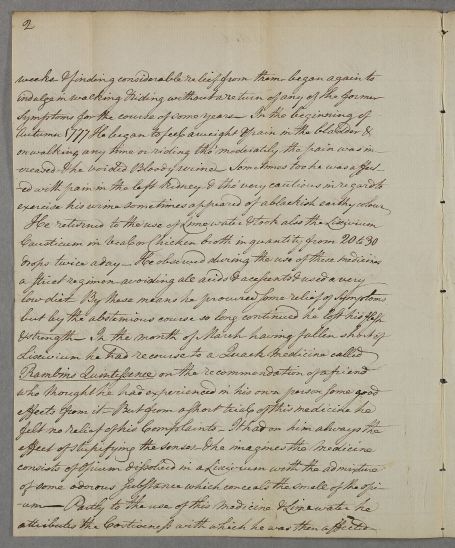 2
weeks & finding considerable relief from them began again to
indulge in walking & riding without a return of any of the former
Symptoms for the course of some years — In the beginning of
Autumn 1777 He began to feel a weight & pain in the bladder, &
on walking any time or riding tho' moderately the pain was in-
creased & he voided bloody urine — Sometimes too he was affec-
ed with pain in the left kidney & tho' very cautious in regard to
exercise his urine sometimes appeared of a blackish earthy colour
He returned to the use of Lime water & took also the Lixivium
Causticum in veal or Chicken broth in quantity from 20 to 30
drops twice a day — He observed during the use of these medicines
a strict regimen avoiding all acids & acescents & used a very
low diet By these means he procured some relief of Symptoms
but by the abstemious course so long continued he lost his flesh
& strength — In the month of March having fallen short of
Lixivium he had recourse to a Quack Medicine called
Quintessence on the recommendation of a friend
who thought he had experienced in his own person some good
effects from it — But from a short trial of this medicine he
felt no relief of his Complaints — It had on him always the
effect of stupifying the senses & he imagines the medicine
consists of Opium dissolved in a Lixivium with the admixture
of some odorous Substance which conceals the smell of the opi-
um — Partly to the use of this Medicine & Lime water he
attributes the Costiveness with which he was then affected